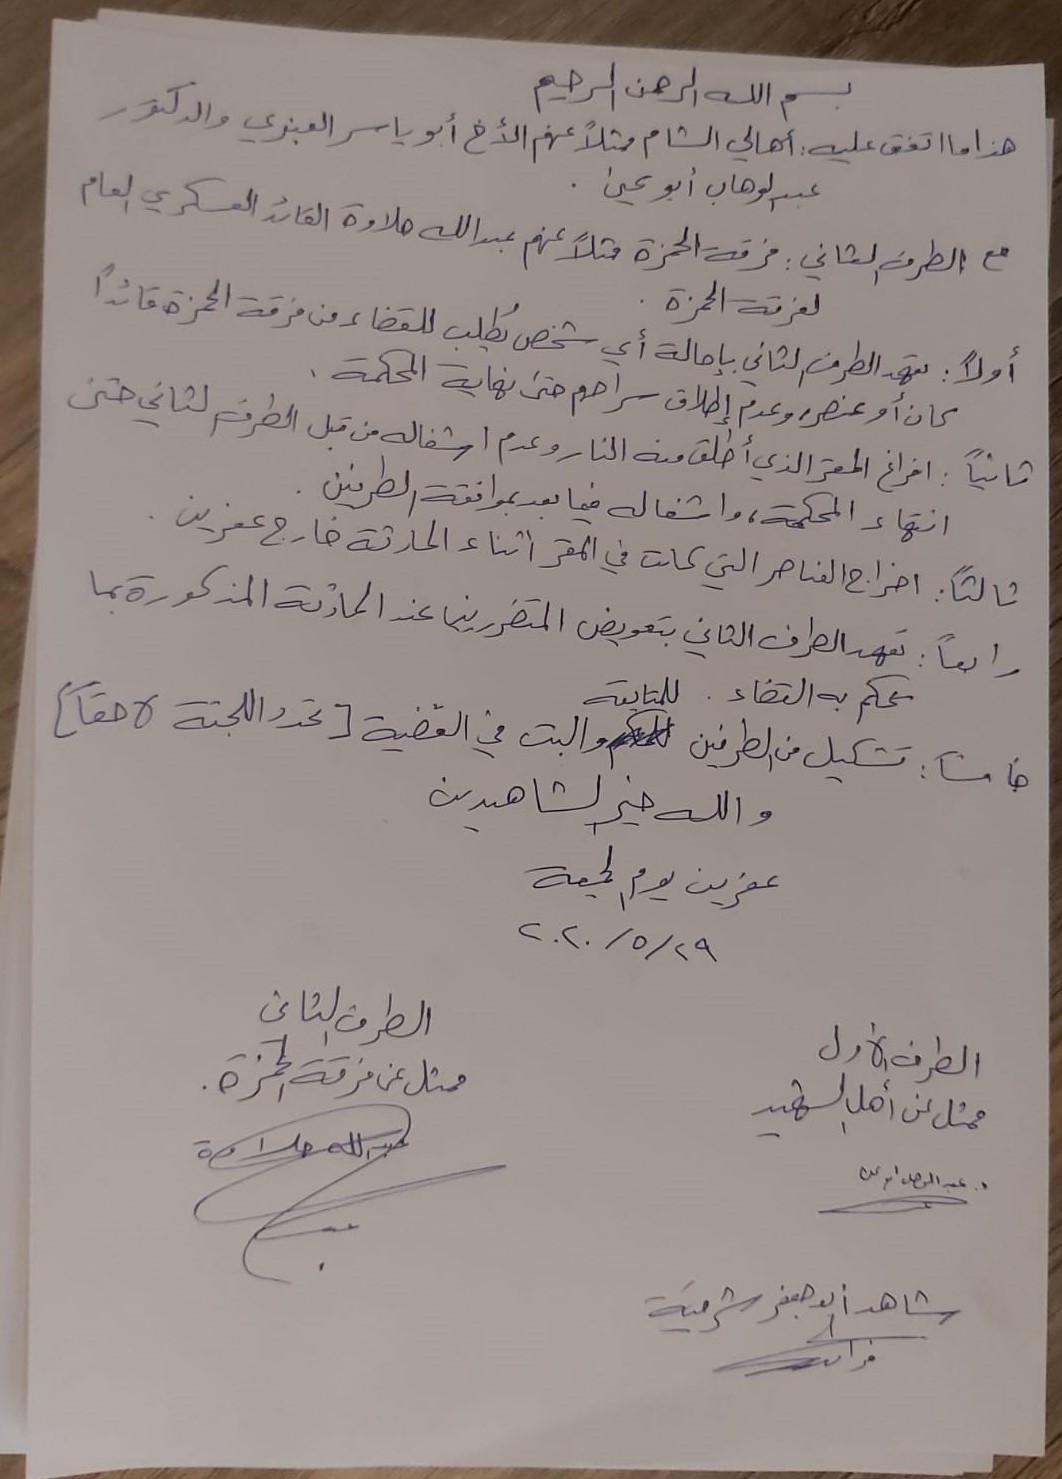 بسم الله الرحمن الرحيم
هذا ما اتفق عليه: أهالي الشام ممثلاً عنهم الأخ أبو ياسر العبنوي والدكتور
عبد الوهاب أبو يحيى .
مع الطرف الثاني: فرقة الحمزة ممثلاً عنهم عبد الله حلاوة القائد العسكري العام
لفرقة الحمزة .
أولاً: تعهد الطرف الثاني بإحالة أي شخص يُطلب للقضاء من فرقة الحمزة قائداً
كان أو عنصر، وعدم إطلاق سراحهم حتى نهاية المحكمة .
ثانياً: افراغ المقر الذي أُطلق منه النار وعدم اشغاله من قبل الطرف الثاني حتى
انتهاء المحكمة، واشغاله فيما بعد بموافقة الطرفين .
ثالثاً: اخراج العناصر التي كانت في المقر أثناء الحادثة خارج عفرين .
رابعاً: تعهد الطرف الثاني بتعويض المتضررين عند الحادثة المذكورة بما
يحكم به القضاء .
خامساً: تشكيل من الطرفين للمتابعة والبت في القضية [تحدد اللجنة لاحقاً]
والله خير الشاهدين
عفرين يوم الجمعة
٢٠٢٠/٥/٢٩
الطرف الأول
ممثل عن أهل الشهيد
د. عبد الوهاب أبو يحيى
الطرف الثاني
ممثل عن فرقة الحمزة.
عبد الله حلاوة
شاهد أبو جعفر شرقية